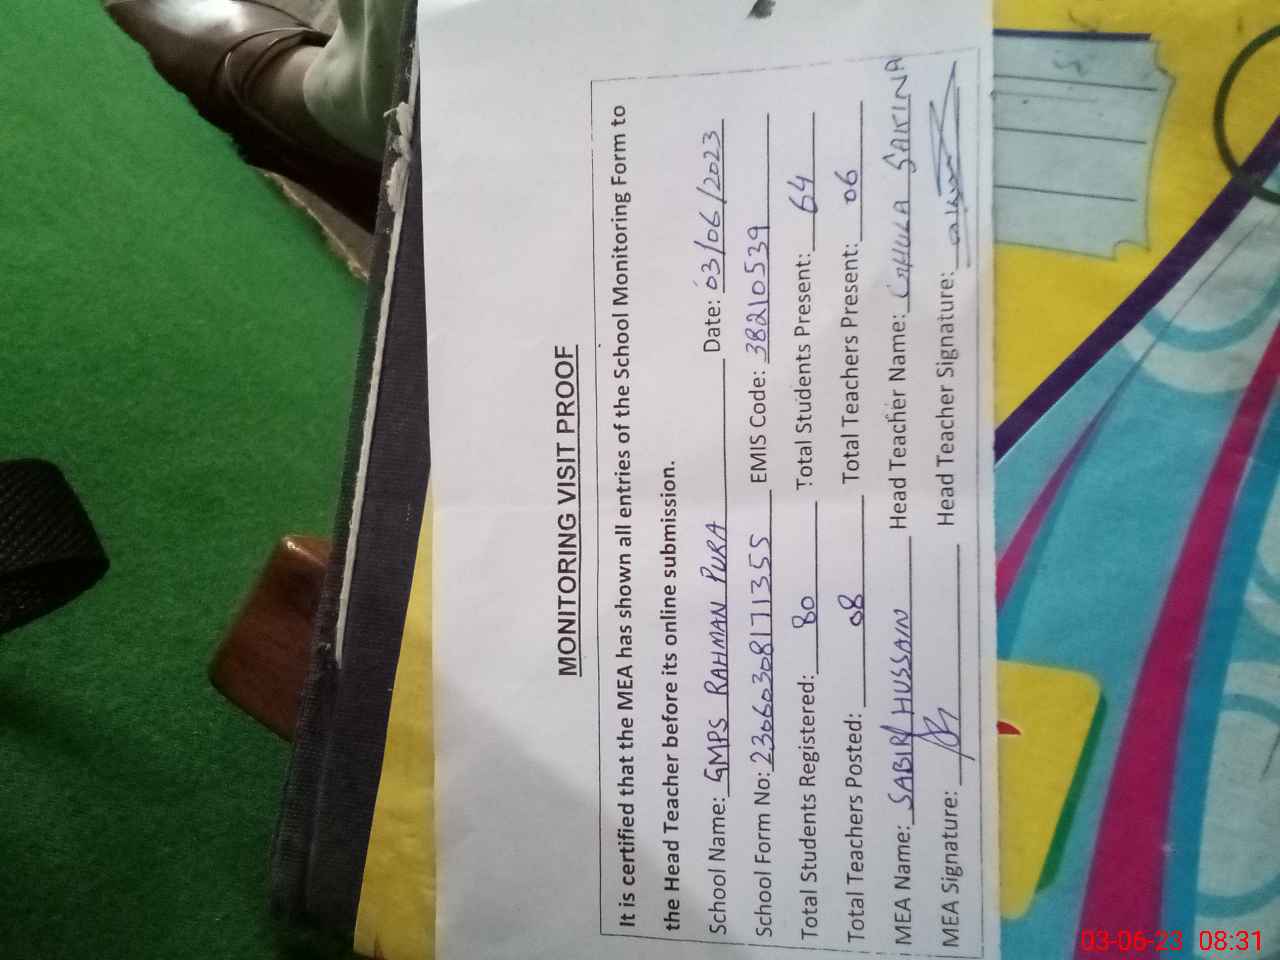 MONITORING VISIT PROOF
It is certified that the MEA has shown all entries of the School Monitoring Form to
the Head Teacher before its online submission.
School Name: GMPS RAHMAN PURA Date: 03/06/2023
School Form No: 23060308171355 EMIS Code: 38210539
Total Students Registered: 80 Total Students Present: 64
Total Teachers Posted: 08 Total Teachers Present: 06
MEA Name: SABIR HUSSAIN Head Teacher Name: SAKINA
MEA Signature: Head Teacher Signature:
03-06-23 08:31